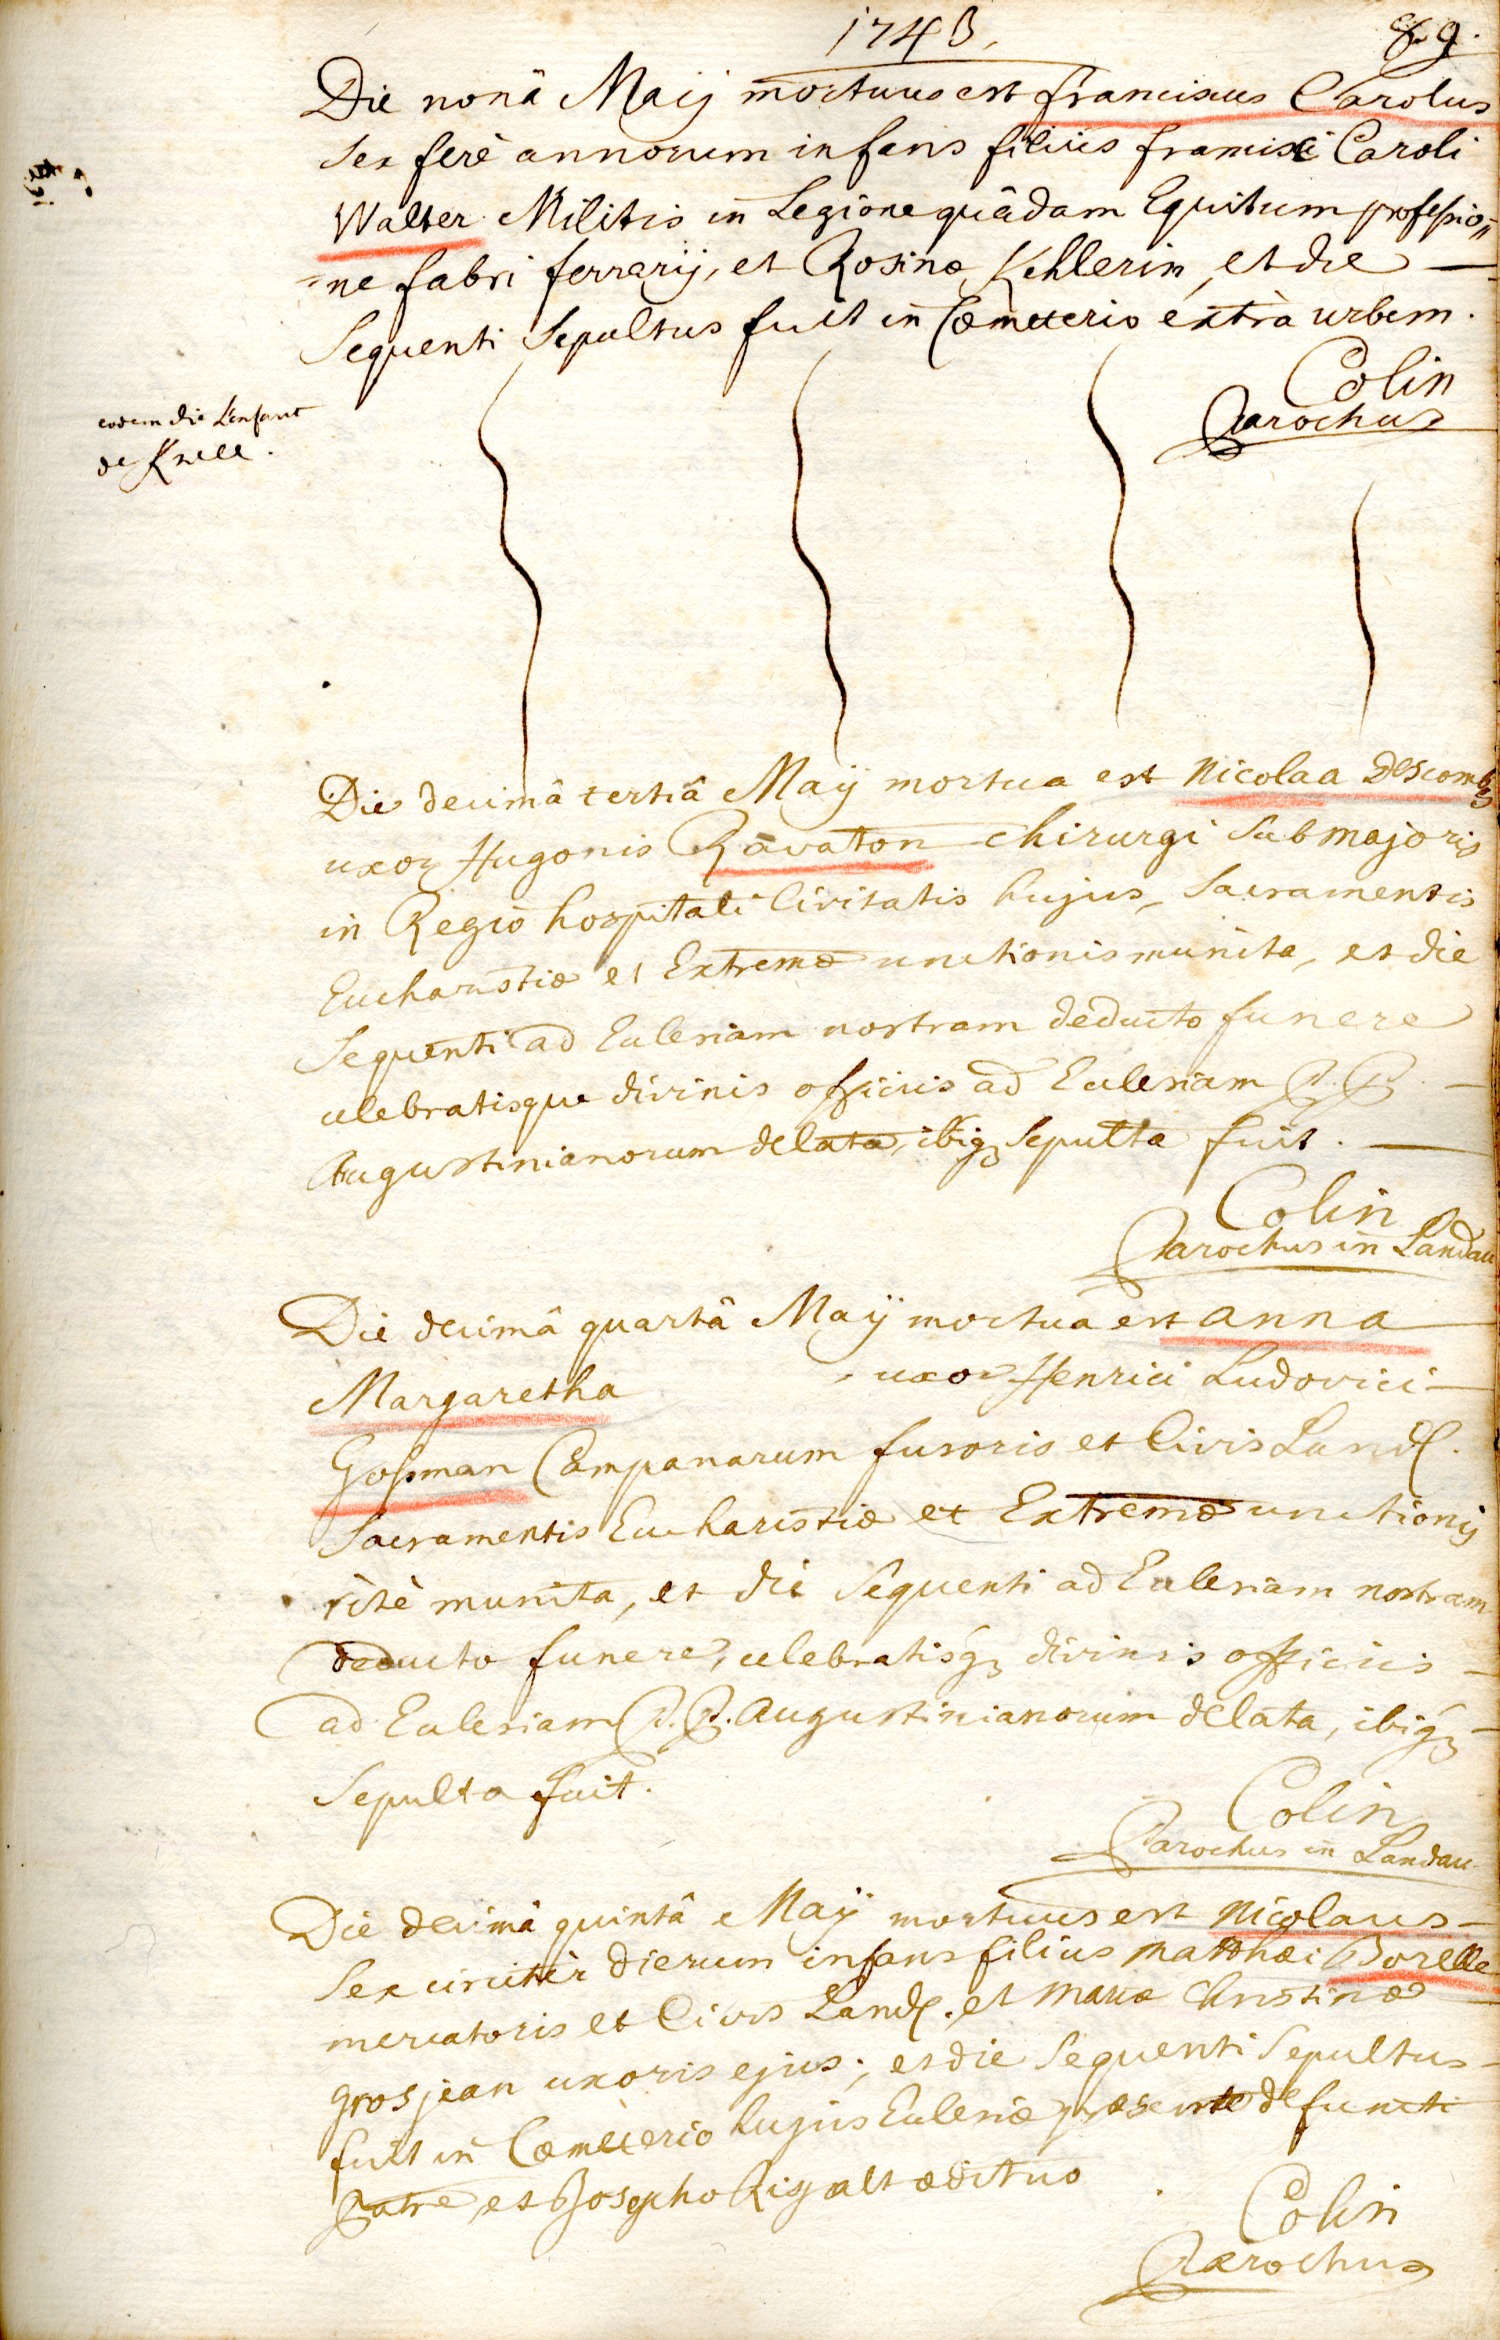 1743.
89.
Die nonâ Maij mortuus est franciscus Carolus
sex ferè annorum infans filius francisci Caroli
Walter Militis in Legione quâdam Equitum professio=
=ne fabri ferrarij, et Rosinæ Kehlerin, et die
Sequenti Sepultus fuit in Cœmeterio extrà urbem.
Colin
Parochus
eodem die L'enfant
de Knell.
Die decimâ tertiâ Maÿ mortua est Nicolaa Descombes
uxor Hugonis Ravaton chirurgi submajoris
in Regio hospitali Civitatis hujus, Sacramentis
Eucharistiæ et Extremæ unctionis munita, et die
Sequenti ad Eclesiam nostram deducto funere
celebratisque divinis officiis ad Eclesiam P.P.
Augustinianorum delata, ibiq3 Sepulta fuit.
Colin
Parochus in Landau
Die decimâ quartâ Maÿ mortua est anna
Margaretha uxor Henrici Ludovici
Gosman Campanarum fusoris et Civis Land.
Sacramentis Eucharistiæ et Extremæ unctionis
ritè munita, et die Sequenti ad Eclesiam nostram
deducto funere, celebratisq3 divinis officiis
ad Eclesiam P.P. Augustinianorum delata, ibiq3
Sepulta fuit.
Colin
Parochus in Landau
Die decimâ quintâ Maÿ mortuus est Nicolaus
Sex circitèr dierum infans filius Matthæi Borelle
mercatoris et Civis Land. et Mariæ Christinæ
grosjean uxoris ejus; et die Sequenti Sepultus
fuit in Cœmeterio hujus Eclesiæ præsente defuncti
Patre, et Josepho Rigalt ædituo
Colin
Parochus